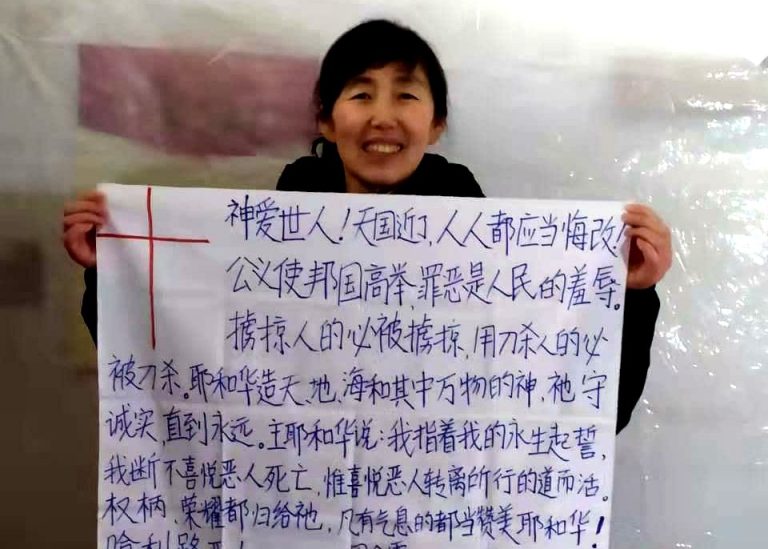 神爱世人！天国近了，人人都应当悔改！
公义使邦国高举，罪恶是人民的羞辱。
掳掠人的必被掳掠，用刀杀人的必
被刀杀。耶和华造天、地、海和其中万物的神，祂守
诚实，直到永远。主耶和华说：我指着我的永生起誓，
我断不喜悦恶人死亡，惟喜悦恶人转离所行的道而活。
权柄、荣耀都归给祂，凡有气息的都当赞美耶和华！
哈利路